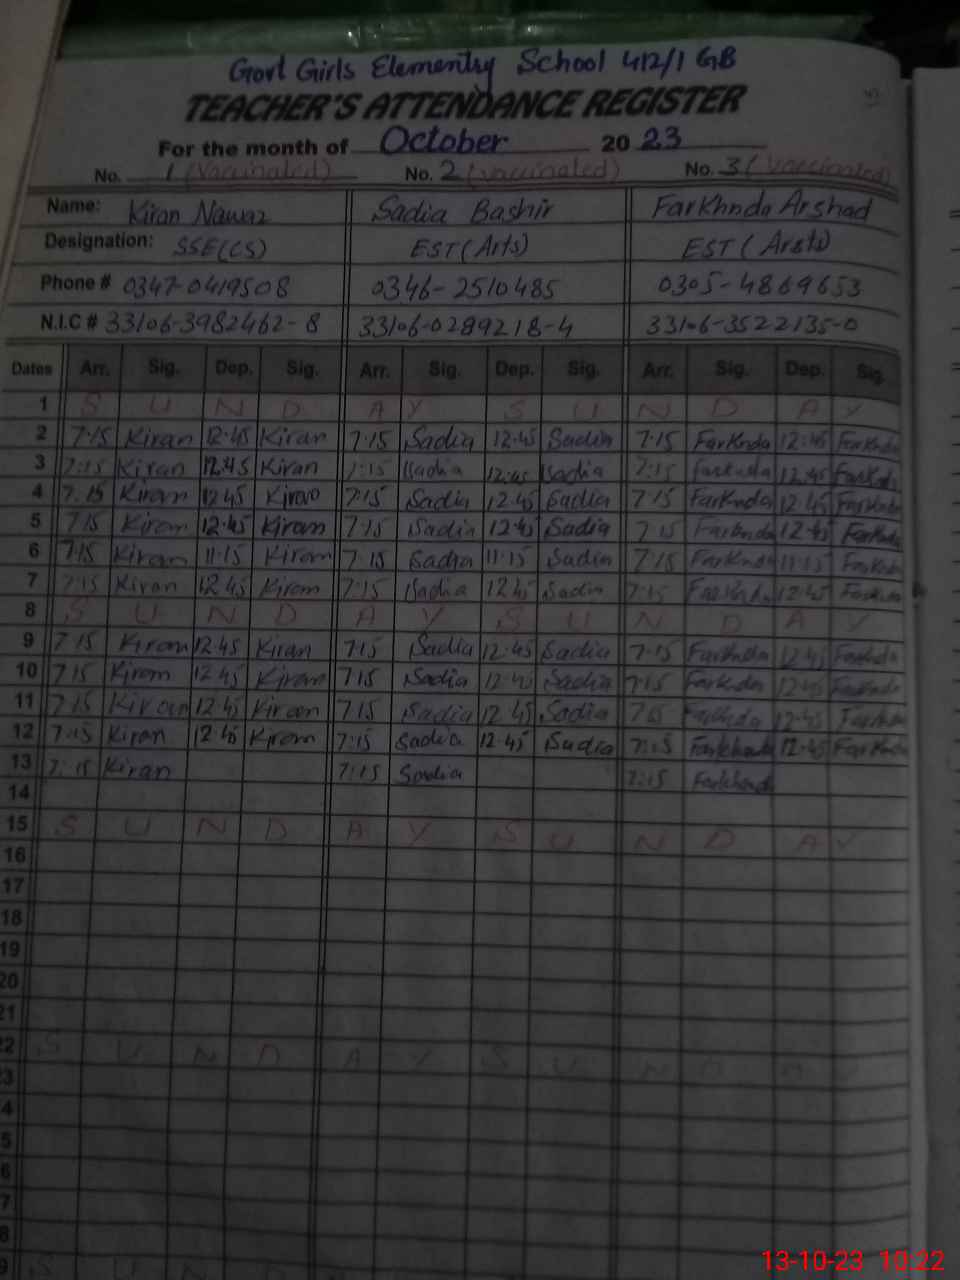 Govt Girls Elementry School 412/1 GB
TEACHER'S ATTENDANCE REGISTER
For the month of October 2023
No. 1 (Vaccinated) No. 2 (vaccinated) No. 3 (vaccinated)
Name: Kiran Nawaz Sadia Bashir FarKhnda Arshad
Designation: SSE(CS) EST (Arts) EST (Arsts)
Phone # 0347-0419508 0346-2510485 0305-4869653
N.I.C # 33106-3982462-8 33106-0289218-4 33106-3522135-0
Dates Arr. Sig. Dep. Sig. Arr. Sig. Dep. Sig. Arr. Sig. Dep. Sig.
1 S U N D A Y S U N D A Y
2 7·15 Kiran 12·45 Kiran 7·15 Sadia 12·45 Sadia 7·15 FarKnda 12:45 FarKnda
3 7:15 Kiran 12:45 Kiran 7:15 Sadia 12:45 Sadia 7:15 FarKnda 12:45 FarKnda
4 7.15 Kiran 12 45 Kiran 7:15 Sadia 12.45 Sadia 7 15 FarKnda 12.45 FarKnda
5 7.15 Kiran 12.45 Kiran 7:15 Sadia 12.45 Sadia 7 15 FarKnda 12.45 FarKnda
6 7.15 Kiran 11·15 Kiran 7·15 Sadia 11·15 Sadia 7.15 FarKnda 11:15 FarKnda
7 7:15 Kiran 12.45 Kiran 7:15 Sadia 12.45 Sadia 7:15 FarKnda 12:45 FarKnda
8 S U N D A Y S U N D A Y
9 7·15 Kiran 12.45 Kiran 7.15 Sadia 12.45 Sadia 7.15 FarKnda 12.45 FarKnda
10 7 15 Kiran 12.45 Kiran 7.15 Sadia 12.45 Sadia 7.15 FarKnda 12.45 FarKnda
11 7.15 Kiran 12.45 Kiran 7.15 Sadia 12.45 Sadia 7.15 FarKnda 12.45 FarKnda
12 7:15 Kiran 12.45 Kiran 7:15 Sadia 12.45 Sadia 7:15 Farkhanda 12.45 FarKnda
13 7:15 Kiran 7:15 Sadia 7:15 Farkhanda
14
15 S U N D A Y S U N D A Y
16
17
18
19
20
21
22 S U N D A Y S U N D A Y
3
4
5
6
7
8
9 S U N D
13-10-23 10:22